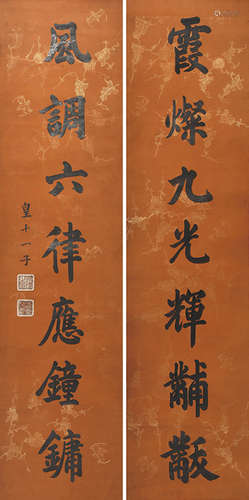 霞燦九光輝黼黻
風調六律應鐘鏞
皇十一子